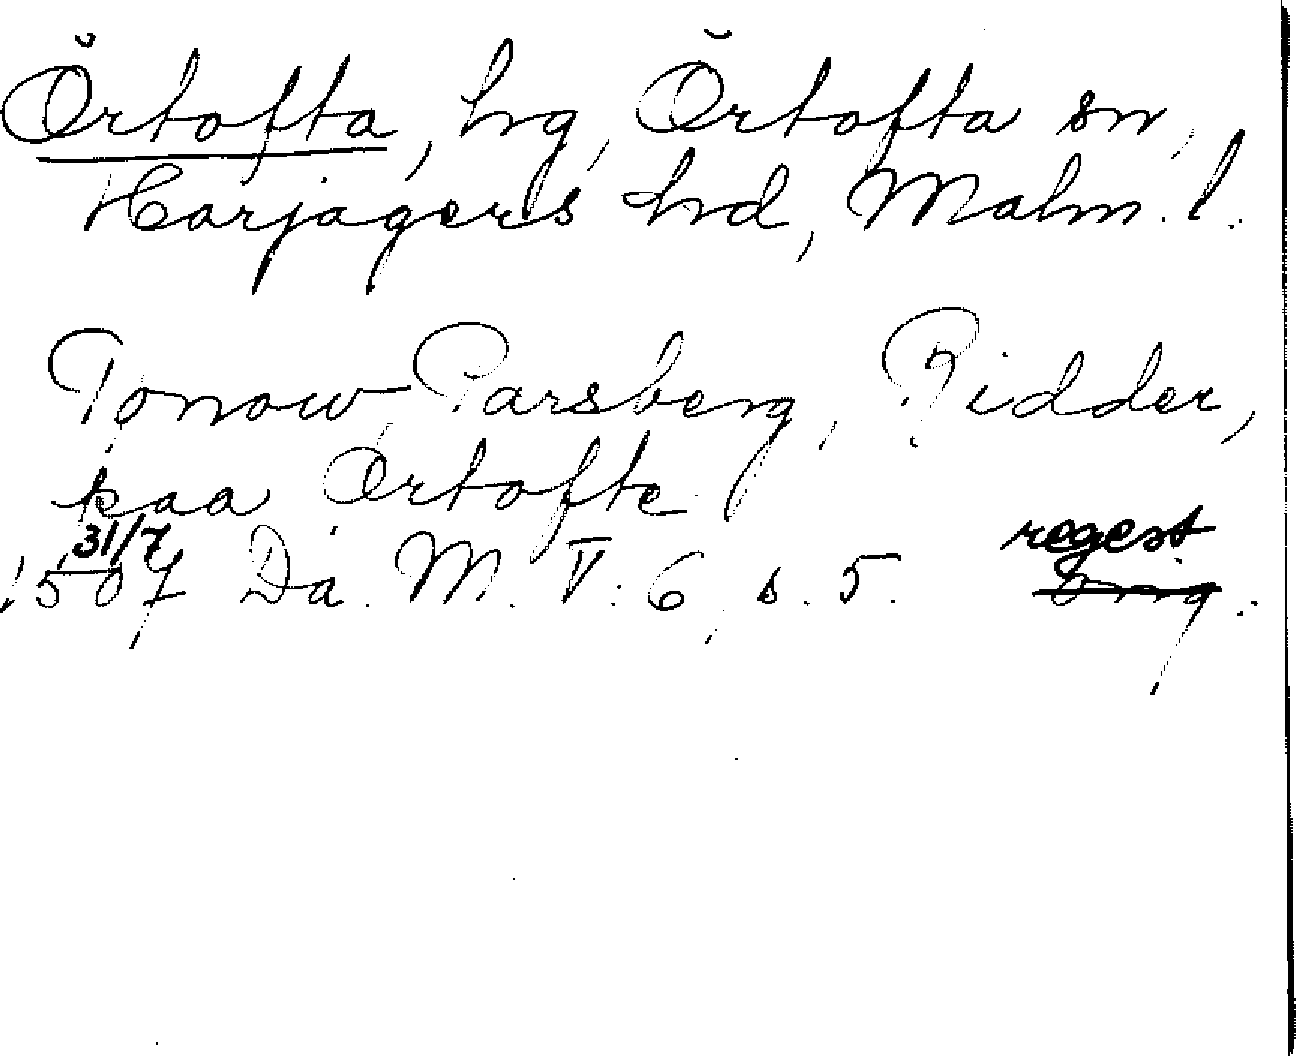 Örtofta, hg, Örtofta sn,
Harjagers hd, Malm. l.
Tønow Parsberg, Ridder,
paa Ørtofte
31/7 regest
1507 Da. M. V. 6, s. 5. Orig.